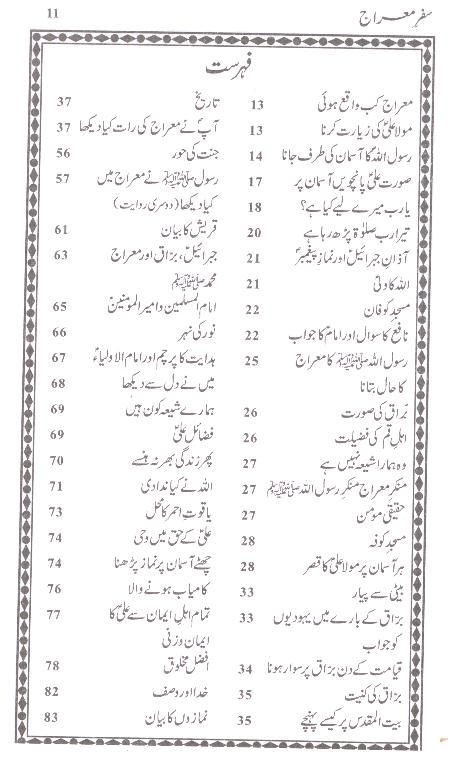 سفرِ معراج 11
فہرست
معراج کب واقع ہوئی 13
مولا علیؑ کی زیارت کرنا 13
رسول اللہؐ کا آسمان کی طرف جانا 14
صورت علیؑ پانچویں آسمان پر 17
یا رب میرے لیے کیا ہے؟ 18
تیرا رب صلوٰۃ پڑھ رہا ہے 20
آذانِ جبرائیلؑ اور نمازِ پیغمبرؐ 21
اللہ کا ولی 21
مسجد کوفان 22
نافع کا سوال اور امامؑ کا جواب 22
رسول اللہ ﷺ کا معراج 25
کا حال بتانا
بُراق کی صورت 26
اہلِ قم کی فضیلت 26
وہ ہمارا شیعہ نہیں ہے 27
منکرِ معراج منکرِ رسول اللہ ﷺ 27
حقیقی مومن 27
مسجدِ کوفہ 28
ہر آسمان پر مولا علیؑ کا قصر 28
بیٹی سے پیار 33
بُراق کے بارے میں یہودیوں 33
کو جواب
قیامت کے دن بُراق پر سوار ہونا 34
بُراق کی کنیت 35
بیت المقدس پر کیسے پہنچے 35
تاریخ 37
آپؐ نے معراج کی رات کیا دیکھا 37
جنت کی حور 56
رسول ﷺ نے معراج میں 57
کیا دیکھا (دوسری روایت)
قریش کا بیان 61
جبرائیلؑ، بُراق اور معراج 63
محمد ﷺ
امام المسلمین و امیر المومنین 65
نور کی نہر 66
ہدایت کا پرچم اور امام الاولیاءؑ 67
میں نے دل سے دیکھا 68
ہمارے شیعہ کون ہیں 69
فضائل علیؑ 69
پھر زندگی بھر نہ ہنسے 70
اللہ نے کیا ندا دی 71
یاقوتِ احمر کا محل 73
علیؑ کے حق میں وحی 74
چھٹے آسمان پر نماز پڑھنا 74
کامیاب ہونے والا 76
تمام اہلِ ایمان سے علیؑ کا 77
ایمان وزنی
افضل مخلوق 78
خدا اور وصف 82
نمازوں کا بیان 83